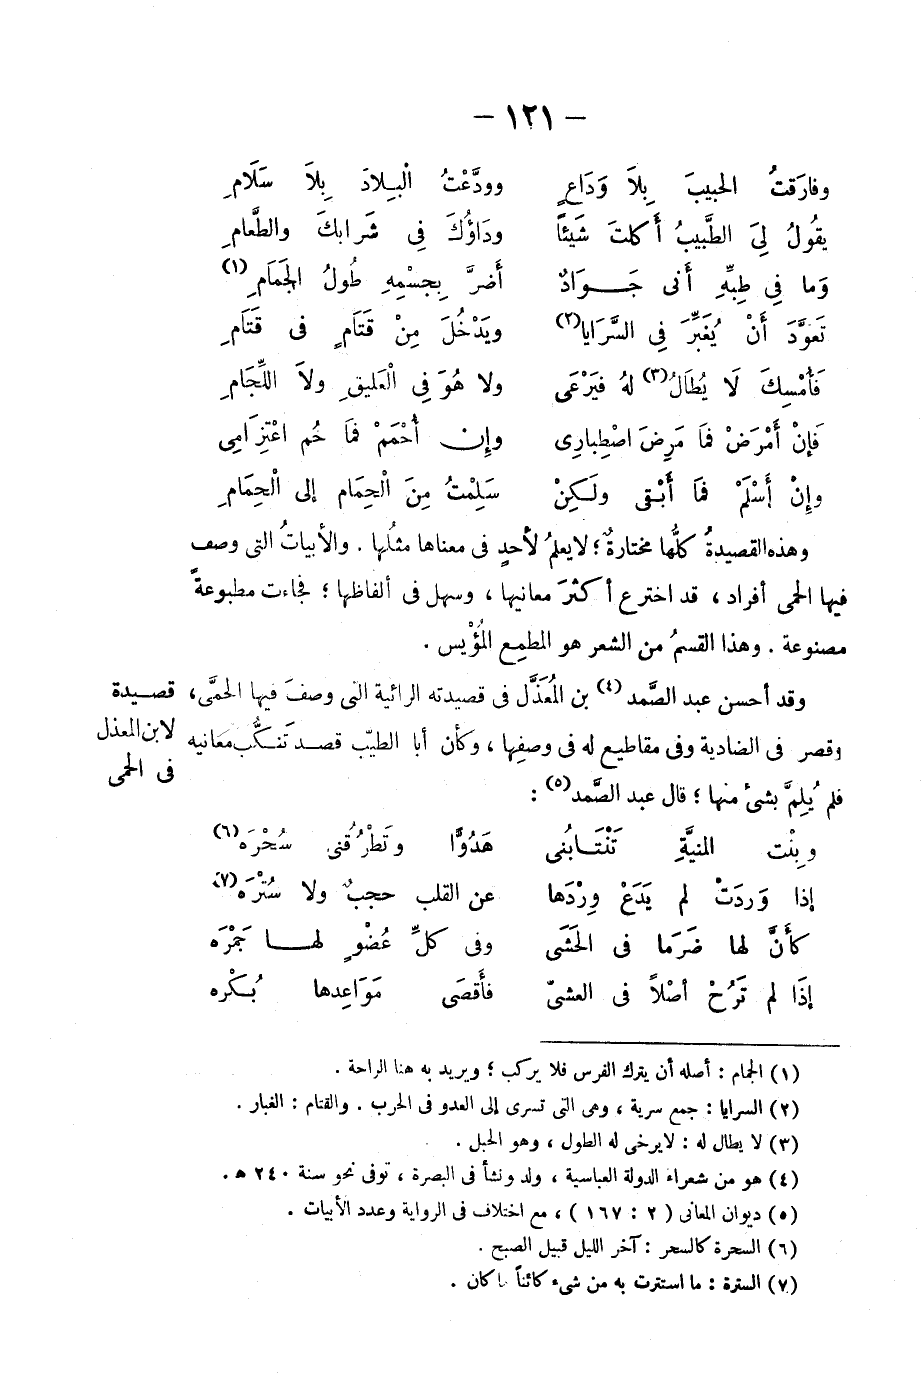 – ١٢١ –
وفارَقتُ الحبيبَ بِلاَ وَدَاعٍ وودَّعْتُ الْبِلادَ بِلاَ سَلَامِ
يقُولُ لِيَ الطَّبيبُ أَكلتَ شَيئاً ودَاؤُكَ فى شَرابكَ والطَّعامِ
وَما فِي طِبِّهِ أَنى جَوَادٌ أَضرَّ بِجسْمِهِ طُولُ الجَمَامِ (١)
تَعوَّدَ أَنْ يُغَبِّرَ فِى السَّرَايا (٢) ويَدْخُلَ مِنْ قَتَامٍ فى قَتَامِ
فَأَمْسِكَ لَا يُطَالُ (٣) لهُ فيَرْعَى ولا هُوَ فِى الْعَليقِ ولاَ اللِّجَامِ
فَإنْ أَمْرَضْ فمَا مَرِضَ اصْطِبارِى وإن أُحْمَمْ فمَا حُم اعْتِزَامِى
وإنْ أَسْلَمْ فمَا أَبْقى ولَكِنْ سَلِمْتُ مِنَ الْحِمَامِ إلى الْحِمَامِ
وهذه القصيدةُ كلُّها مختارةٌ ؛ لايعلمُ لأحدٍ فى معناها مثلُها . والأبياتُ التى وصف
فيها الحمى أفراد ، قد اخترع أكثرَ معانيها ، وسهل فى ألفاظها ؛ فجاءت مطبوعةً
مصنوعة . وهذا القسمُ من الشعر هو المطمِع المُؤْيس .
وقد أحسن عبد الصَّمد (٤) بن المُعَذَّل فى قصيدته الرائية التى وصفَ فيها الحمَّى،
وقصر فى الضادية وفى مقاطيع له فى وصفِها ، وكأن أبا الطيّب قصد تَنكُّب معانيه
فلم يُلِمَّ بشىْ منها ؛ قال عبد الصَّمد (٥) :
قصيدة
لابن المعذل
فى الحمى
وبِنْت المنيَّةِ تَنْتَابُنى هَدُوًّا وتَطْرُقنى سُحْرَه (٦)
إذا وَردَتْ لم يَدَعْ وِرْدَها عن القلب حجبٌ ولا سُتْرَه (٧)
كأَنَّ لها ضَرَما فى الحَشَى وفى كلِّ عُضْوٍ لها جَمْرَه
إذَا لم تَرُحْ أصْلاً فى العشىّ فأَقصَى مَوَاعِدها بُكْره
(١) الجمام : أصله أن يترك الفرس فلا يركب ؛ ويريد به هنا الراحة .
(٢) السرايا : جمع سرية ، وهى التى تسرى إلى العدو فى الحرب . والقتام : الغبار .
(٣) لا يطال له : لايرخى له الطول ، وهو الحبل .
(٤) هو من شعراء الدولة العباسية ، ولد ونشأ فى البصرة ، توفى نحو سنة ٢٤٠ ه .
(٥) ديوان المعانى ( ٢ : ١٦٧ ) ، مع اختلاف فى الرواية وعدد الأبيات .
(٦) السحرة كالسحر : آخر الليل قبيل الصبح .
(٧) السترة : ما استترت به من شىء كائناً ما كان .